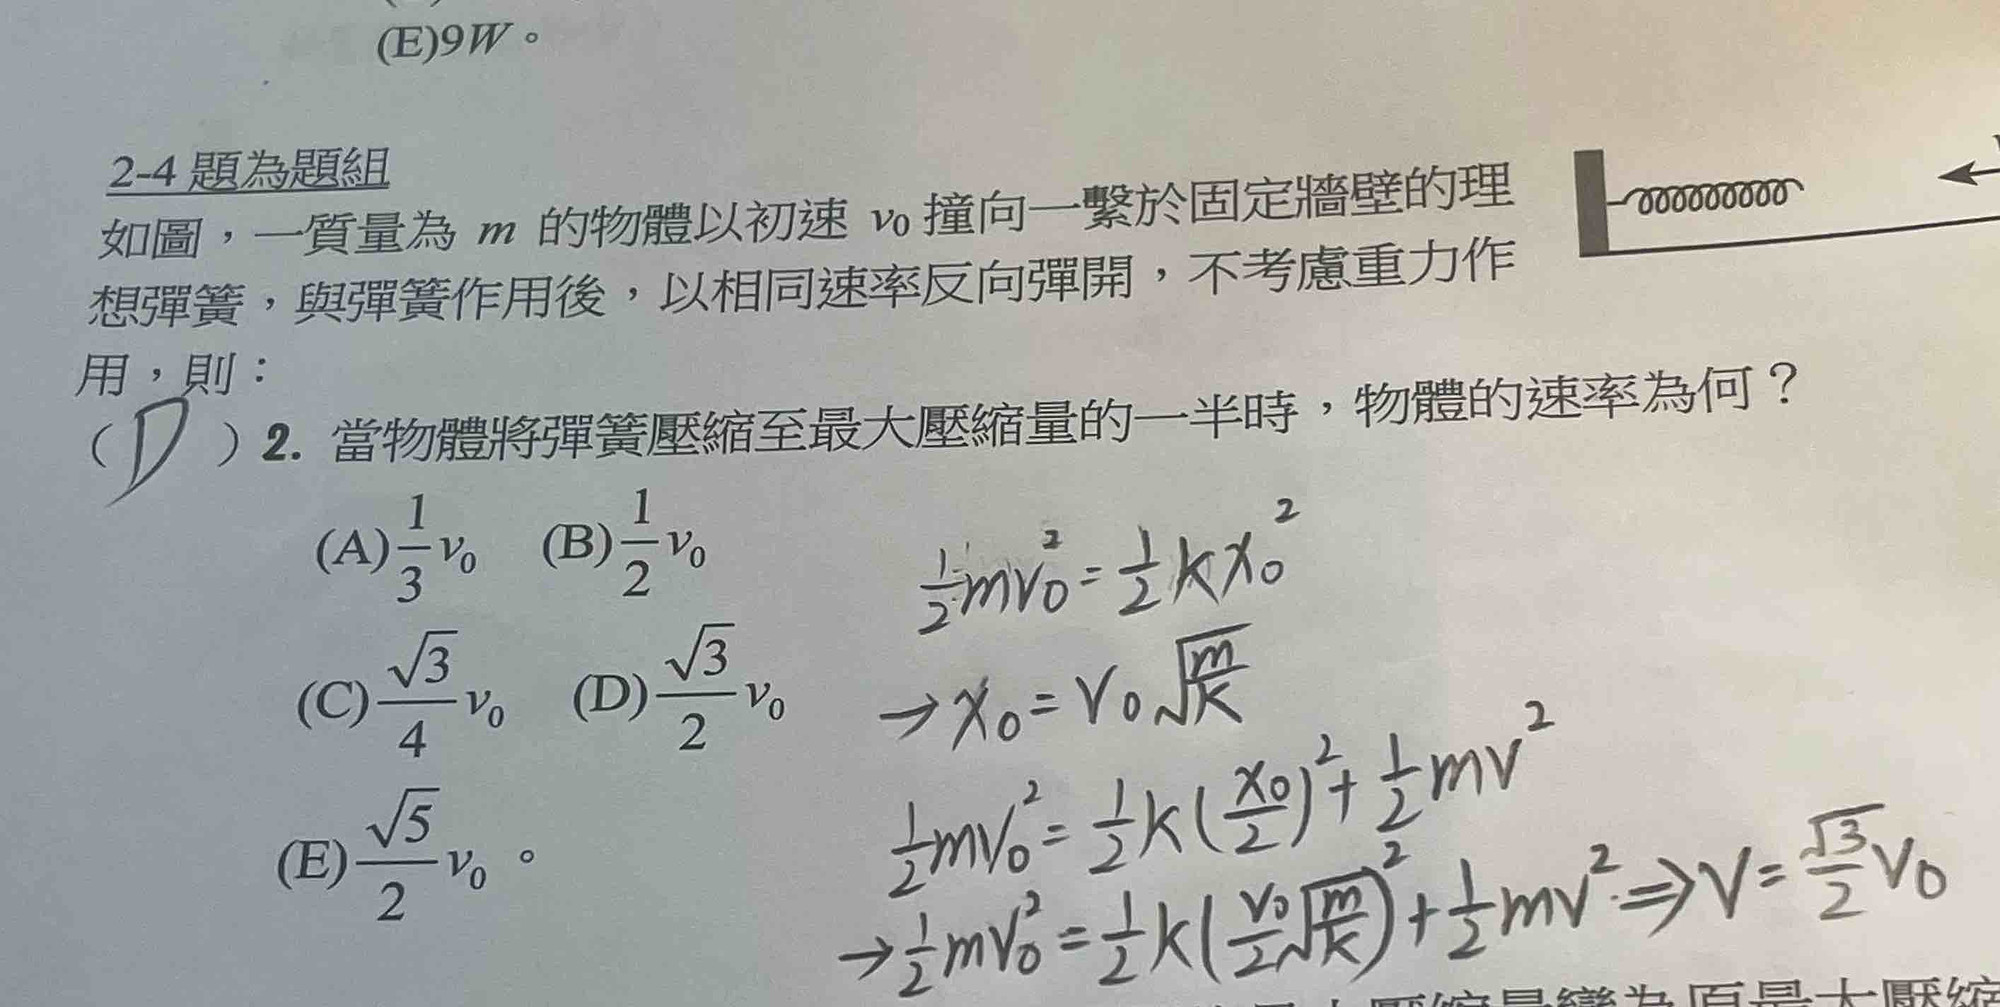 (E)9W。
2-4 題為題組
如圖，一質量為 m 的物體以初速 v₀ 撞向一繫於固定牆壁的理
想彈簧，與彈簧作用後，以相同速率反向彈開，不考慮重力作
用，則：
( D ) 2. 當物體將彈簧壓縮至最大壓縮量的一半時，物體的速率為何？
(A) 1/3 v₀ (B) 1/2 v₀
(C) √3/4 v₀ (D) √3/2 v₀
(E) √5/2 v₀。
1/2 mv₀² = 1/2 kx₀²
→ x₀ = v₀ √(m/k)
1/2 mv₀² = 1/2 k(x₀/2)² + 1/2 mv²
→ 1/2 mv₀² = 1/2 k(v₀/2 √(m/k))² + 1/2 mv² ⇒ v = √3/2 v₀
壓縮量變為原最大壓縮